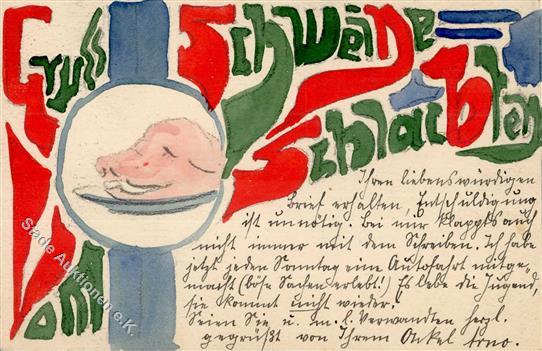 Gruss
vom
Schweine=
Schlachten
Ihren liebenswürdigen
Brief erhalten, Entschuldigung
ist unnötig. Bei mir klappts auch
nicht immer mit dem Schreiben. Ich habe
jetzt jeden Sonntag eine Autofahrt mitge-
macht (böse Sachen erlebt!) Es lebe die Jugend,
sie kommt nicht wieder!
Seien Sie u. Verwandten herzl.
gegrüßt von Ihrem Onkel Arno.
Sade Auktionen e.K.